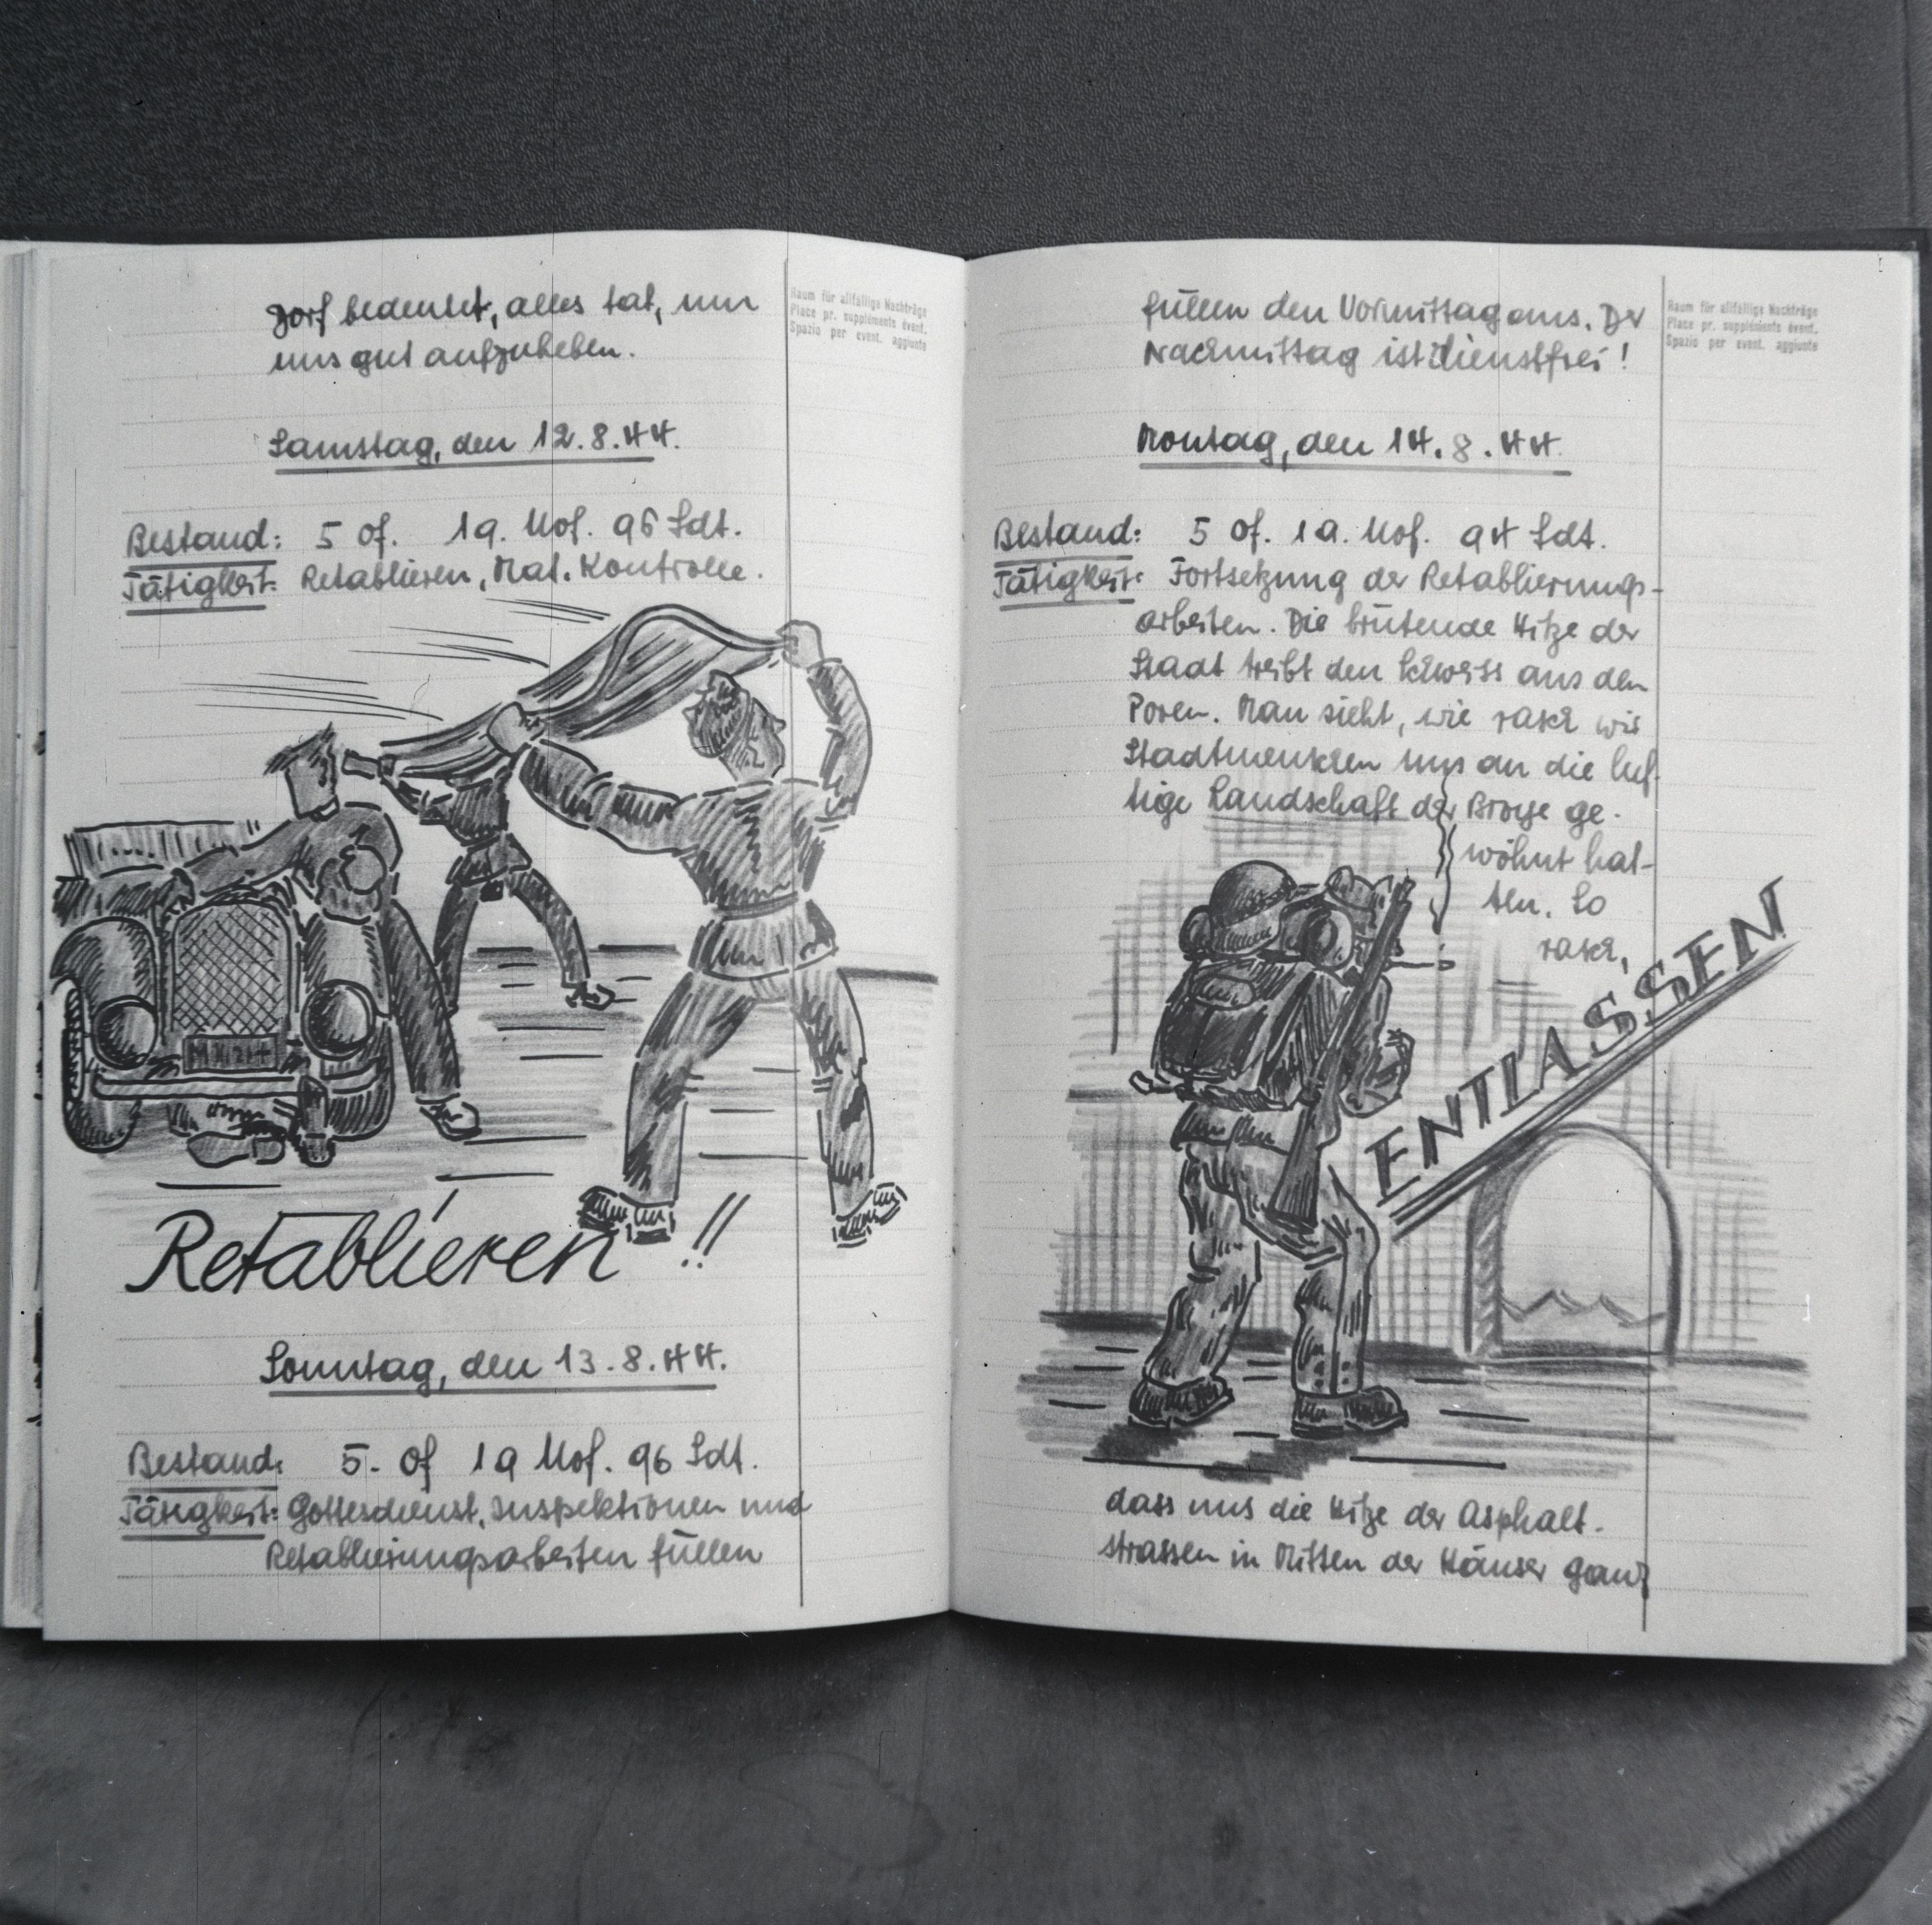 Dorf bedeutet, alles tat, um
uns gut aufzuheben.
Raum für allfällige Nachträge
Place pr. suppléments évent.
Spazio per event. aggiunte
Samstag, den 12.8.44.
Bestand: 5 Of. 19. Uof. 96 Sdt.
Tätigkeit: Retablieren, Mat. Kontrolle.
Retablieren !!
Sonntag, den 13.8.44.
Bestand: 5. Of 19 Uof. 96 Sdt.
Tätigkeit: Gottesdienst, Inspektionen und
Retablierungsarbeiten füllen
füllen den Vormittag aus. Der
Nachmittag ist dienstfrei!
Raum für allfällige Nachträge
Place pr. suppléments évent.
Spazio per event. aggiunte
Montag, den 14.8.44.
Bestand: 5 Of. 19. Uof. 94 Sdt.
Tätigkeit: Fortsetzung der Retablierungs-
arbeiten. Die brütende Hitze der
Stadt treibt den Schweiss aus den
Poren. Man sieht, wie rasch wir
Stadtmenschen uns an die luf-
tige Landschaft der Broye ge-
wöhnt hat-
ten. So
rasch,
ENTLASSEN
dass uns die Hitze der Asphalt-
strassen in Mitten der Häuser ganz